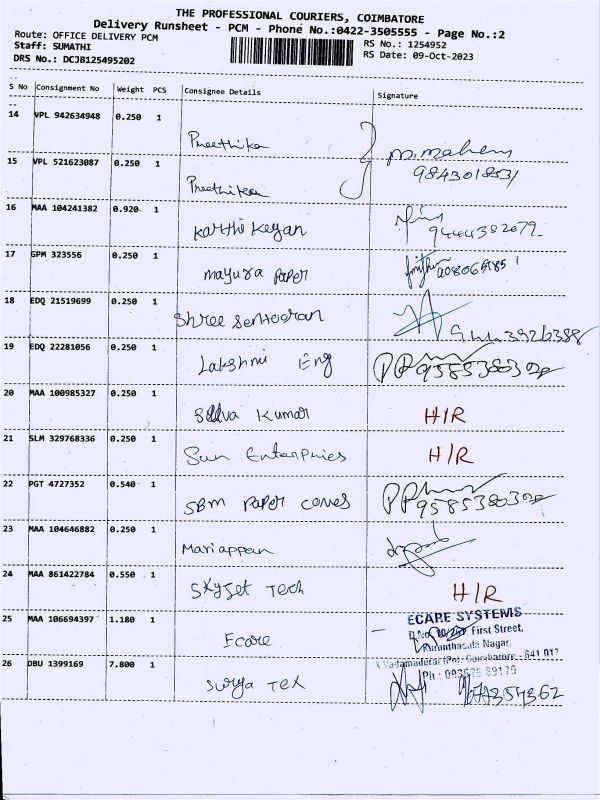 THE PROFESSIONAL COURIERS, COIMBATORE
Delivery Runsheet - PCM - Phone No.:0422-3505555 - Page No.:2
Route: OFFICE DELIVERY PCM
Staff: SUMATHI
DRS No.: DCJB125495202
RS No.: 1254952
RS Date: 09-Oct-2023
S No Consignment No Weight PCS Consignee Details Signature
14 VPL 942634948 0.250 1
Preethika
15 VPL 521623087 0.250 1
9843018531
16 MAA 104241382 0.920 1
Karthikeyan
17 GPM 323556 0.250 1
Mayura Paper
18 EDQ 21519699 0.250 1
Shree
19 EDQ 22281056 0.250 1
Lakshmi Eng
9585380302
20 MAA 100985327 0.250 1
Selva Kumar H/R
21 SLM 329768336 0.250 1
Sun Enterpries H/R
22 PGT 4727352 0.540 1
SBM Paper Cones
9585380302
23 MAA 104646882 0.250 1
Mariappan
24 MAA 861422784 0.550 1
Skyjet Tech H/R
25 MAA 106694397 1.180 1
Ecare
ECARE SYSTEMS
First Street,
Nagar,
Coimbatore - 641 017
26 DBU 1399169 7.800 1
Surya Tex